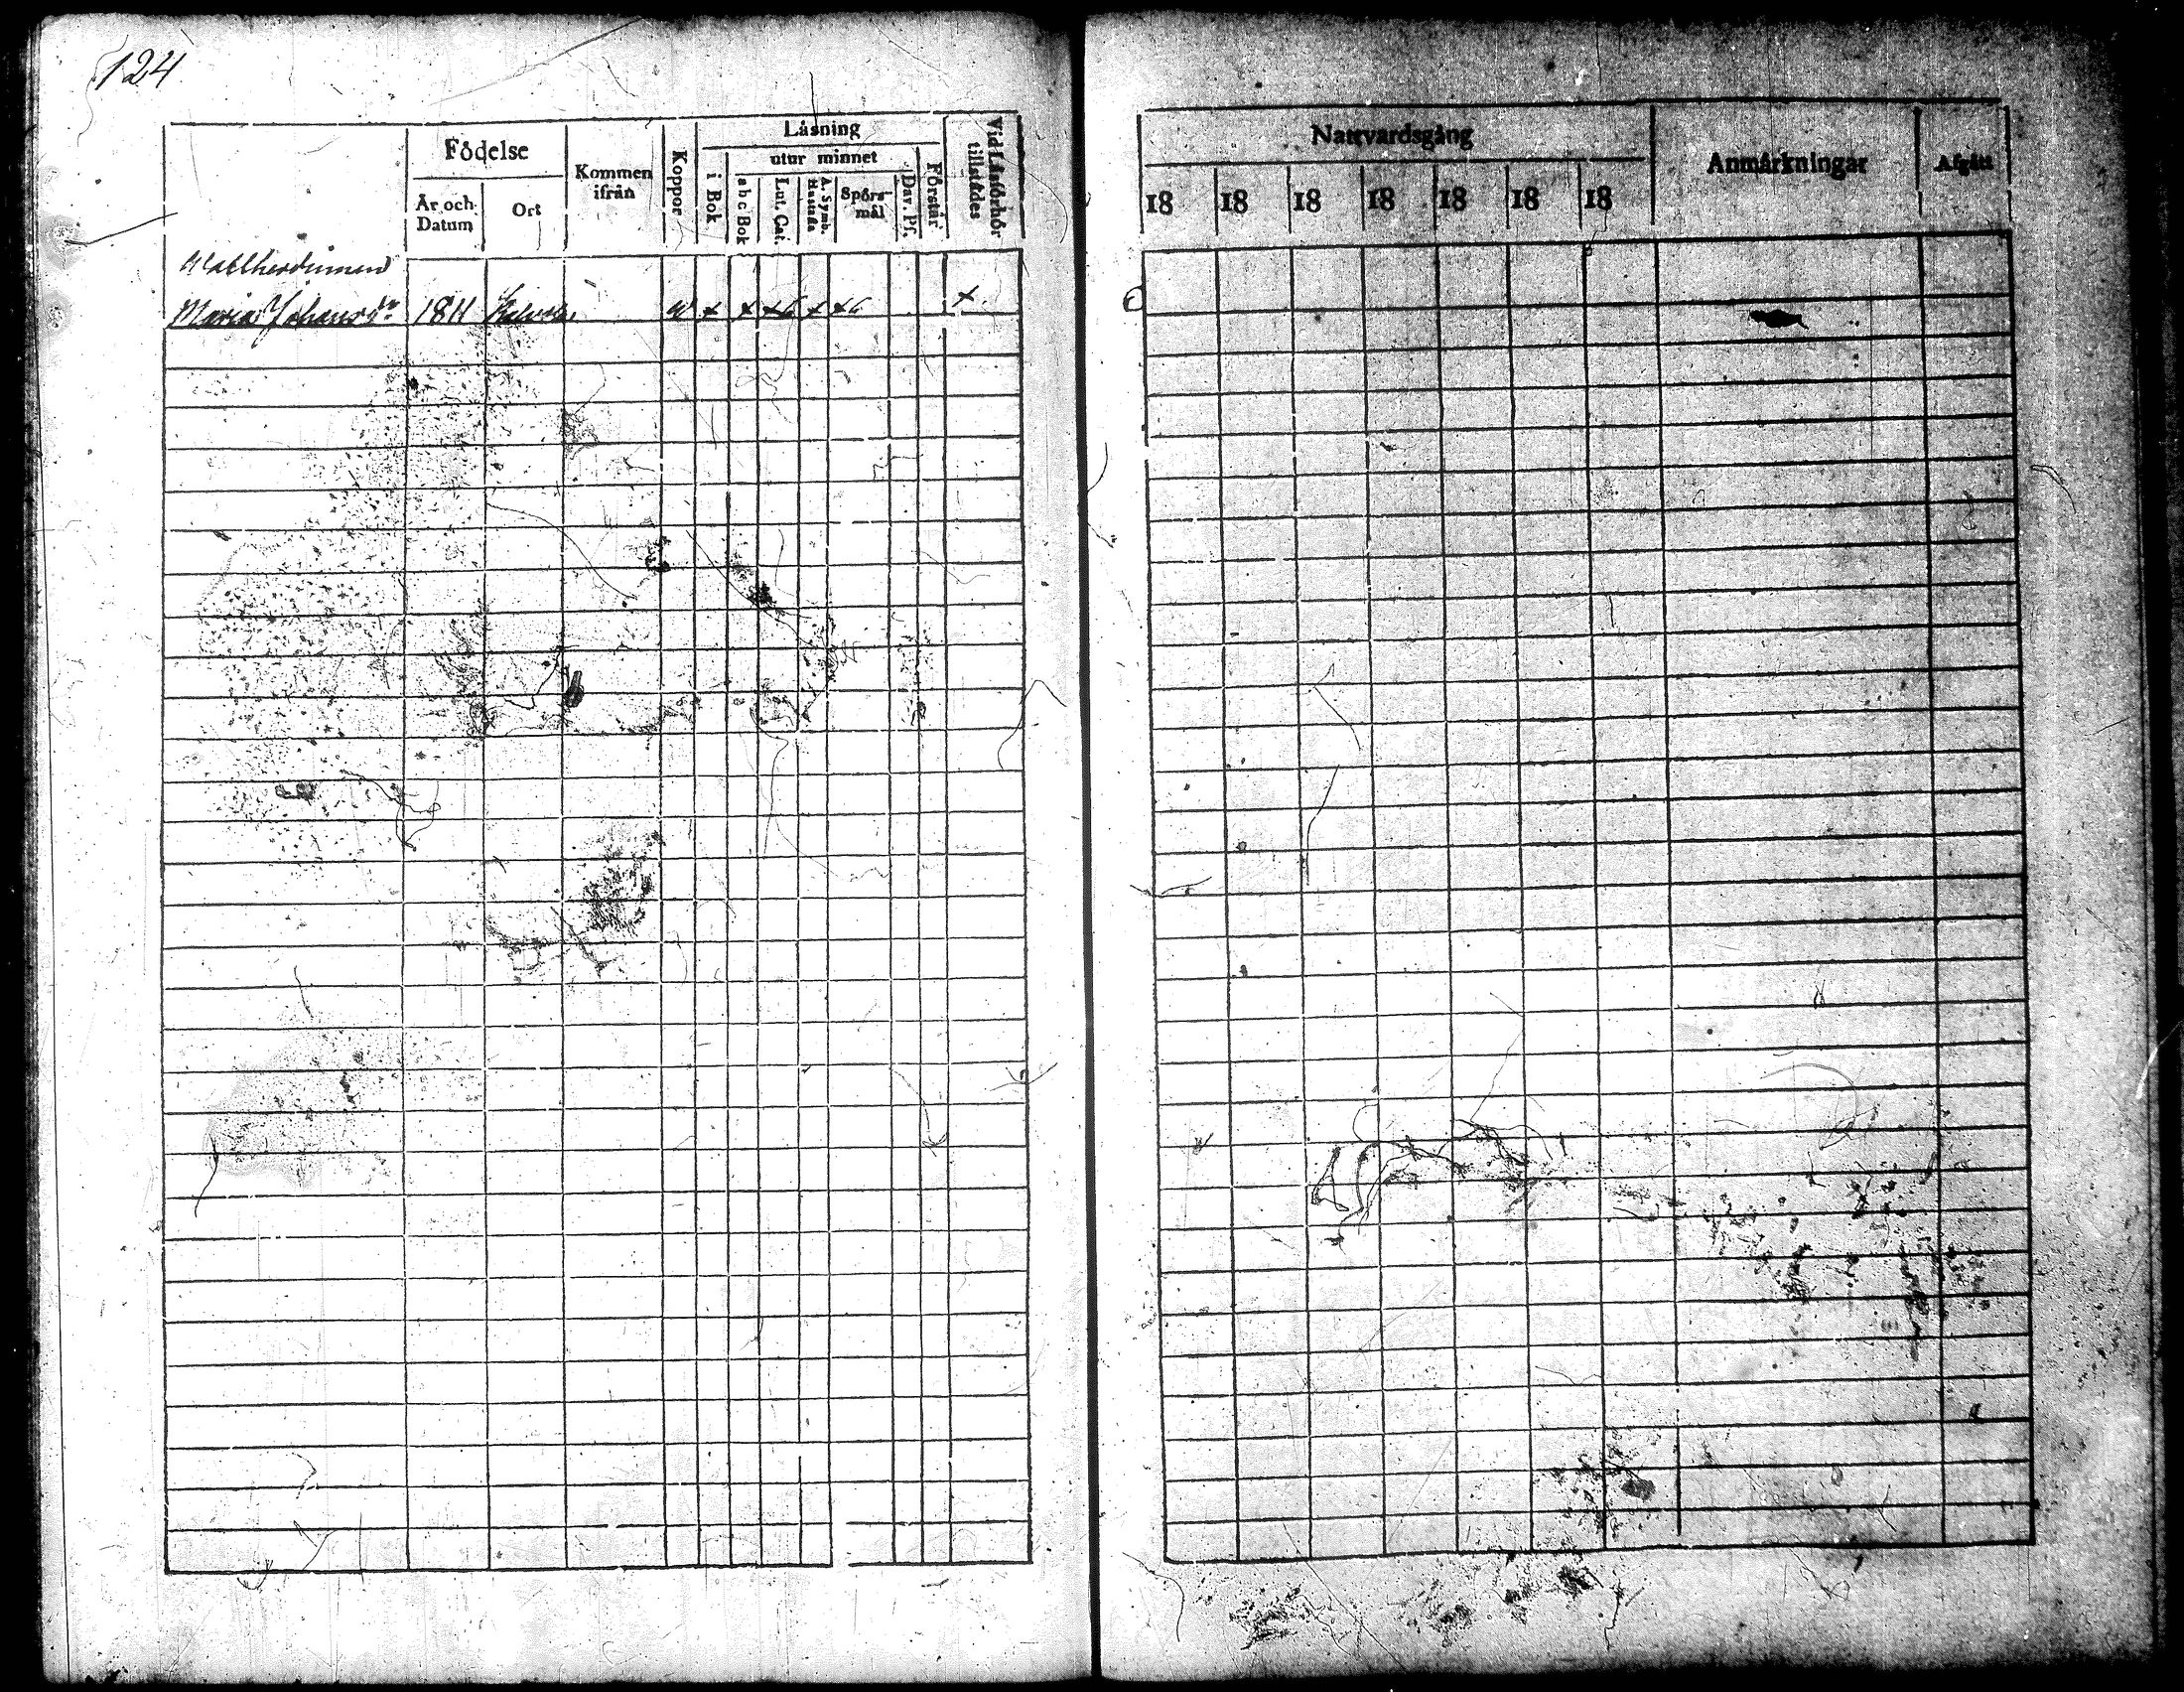 124
Födelse
Kommen ifrån
Koppor
Läsning
Vid Läsförhör tillstädes
utur minnet
Förstår
Är och Datum
Ort
i Bok
a b c Bok
Lut. Cat.
A. Symb. Hustafl.
Spörs-mål
Dav. Ps.
Maria Johansdr 1811
Nattvardsgång
Anmärkningar
Afgått
18 18 18 18 18 18 18